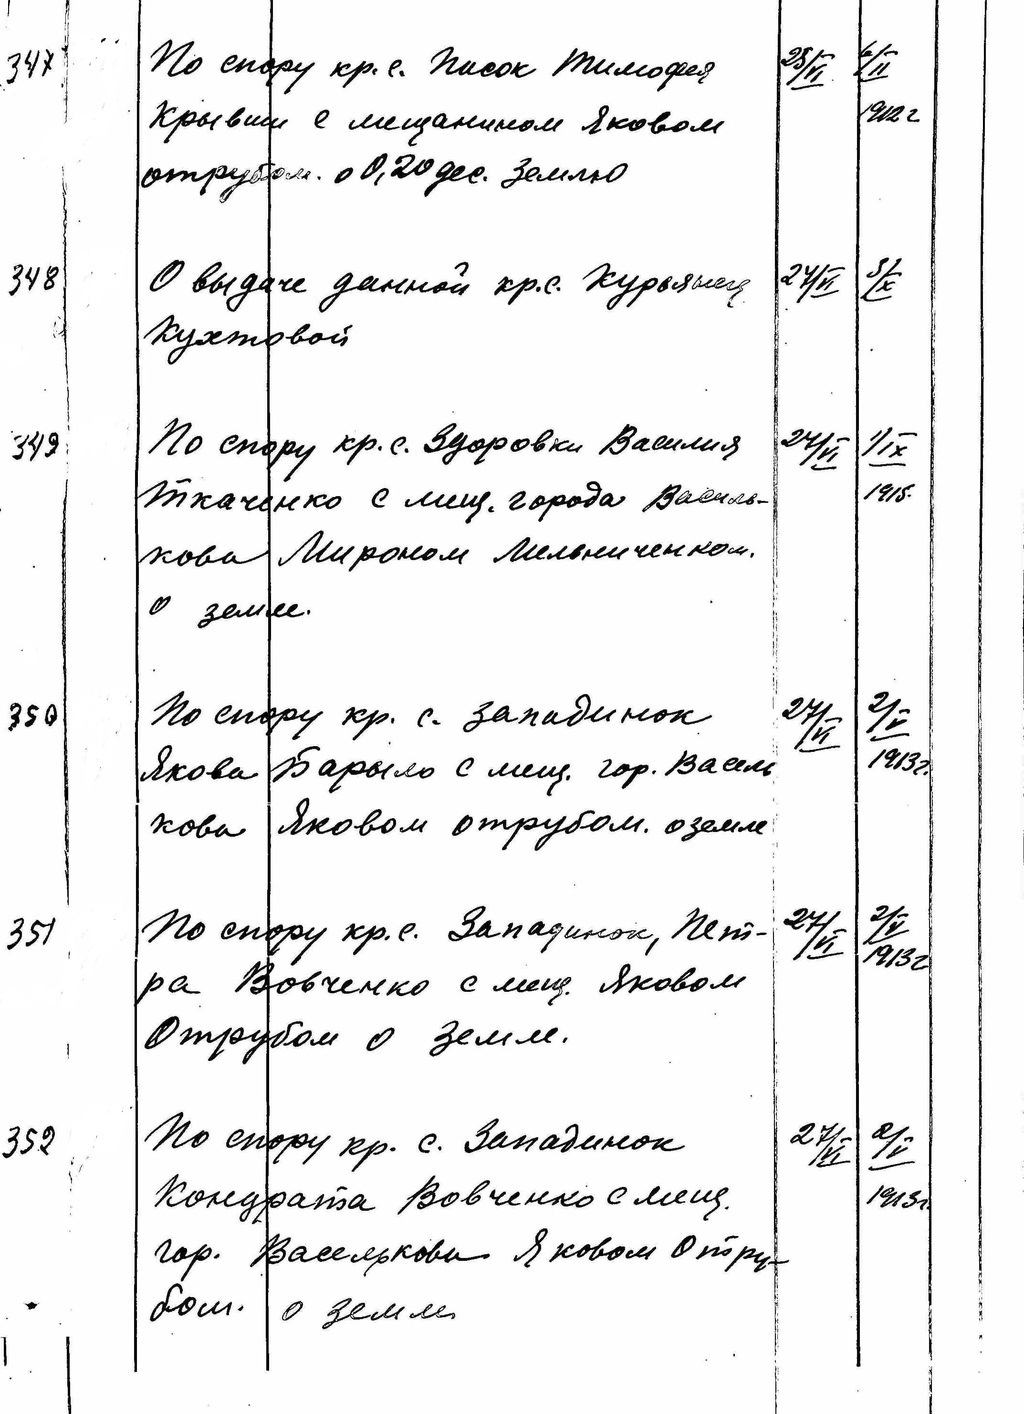 347 По спору кр. с. Писок Тимофея 28/VI 6/II
Крывши с мещанином Яковом 1912 г
отрубом. о 0,20 дес. землю
348 О выдаче данной кр. с. 27/VI 5/X
Кухтовой
349 По спору кр. с. Здоровки Василия 27/VI 1/IX
Ткаченко с мещ. города Василь- 1915.
кова Мироном Мельниченком.
о земле.
350 По спору кр. с. Западинок 27/VI 2/V
Якова Барыло с мещ. гор. Василь 1913 г.
кова Яковом отрубом. о земле
351 По спору кр. с. Западинок, Пет- 27/VI 2/V
ра Вовченко с мещ. Яковом 1913 г
Отрубом о земле.
352 По спору кр. с. Западинок 27/VI 2/V
Кондрата Вовченко с мещ. 1913 г.
гор. Василькова Яковом Отру-
бом. о земле